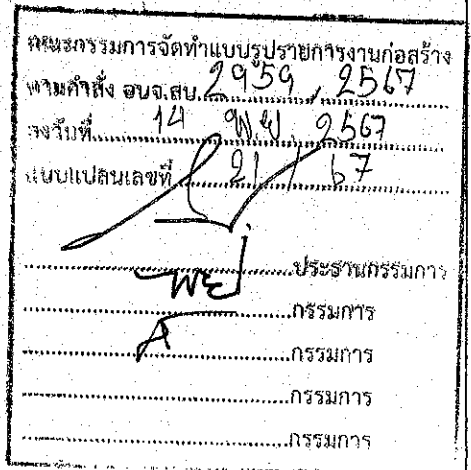 คณะกรรมการจัดทำแบบรูปรายการงานก่อสร้าง
ตามคำสั่ง อบจ.สบ. 2959 / 2567
ลงวันที่ 14 พ.ย. 2567
แบบแปลนเลขที่ 21 / 67
ประธานกรรมการ
กรรมการ
กรรมการ
กรรมการ
กรรมการ